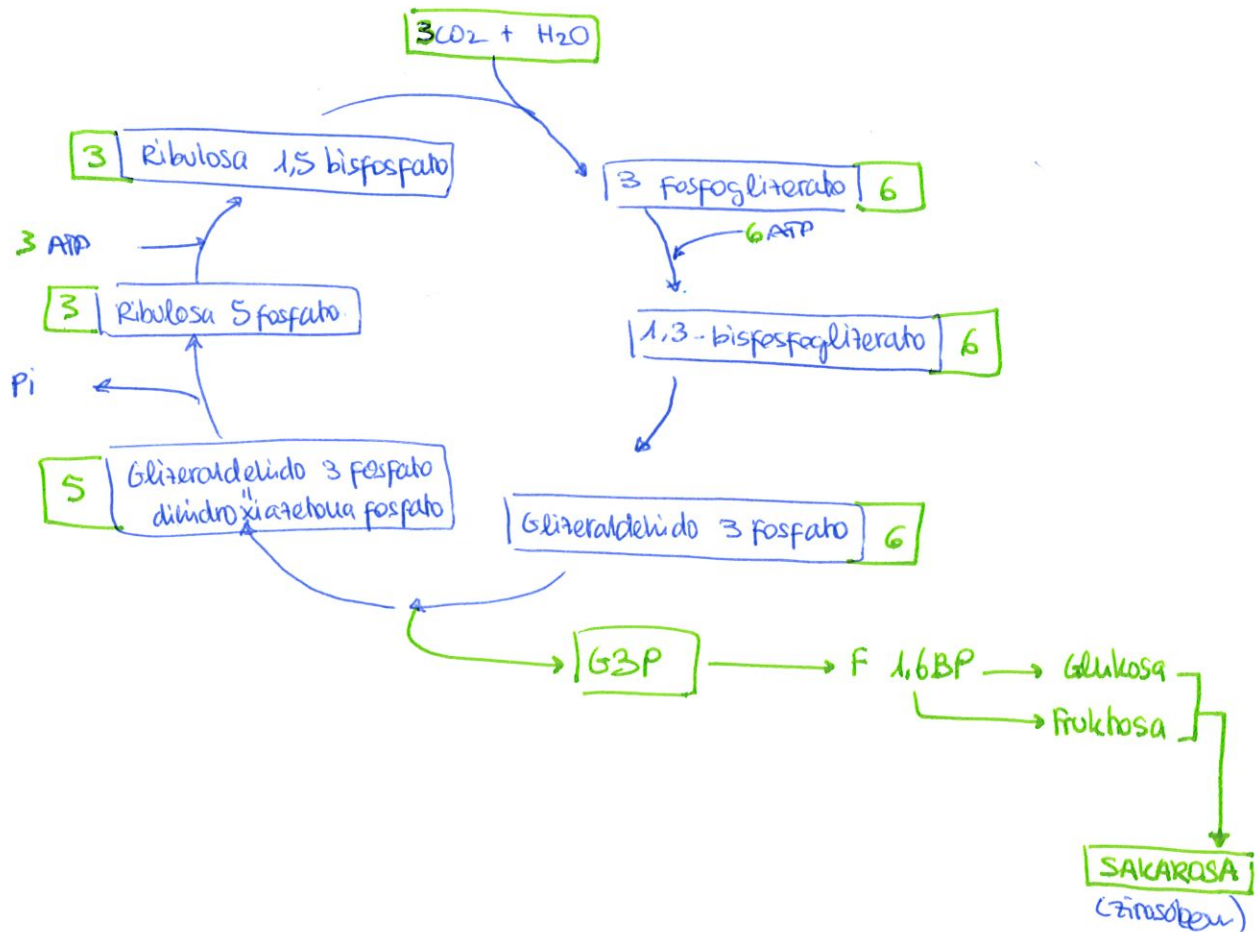 3CO2 + H2O
3 Ribulosa 1,5 bisfosfato
3 fosfoglizerato 6
3 ATP
6 ATP
3 Ribulosa 5 fosfato
1,3-bisfosfoglizerato 6
Pi
5 Glizeraldehido 3 fosfato
dihidroxiazetona fosfato
Glizeraldehido 3 fosfato 6
G3P
F 1,6BP
Glukosa
Fruktosa
SAKAROSA
(zitosolean)